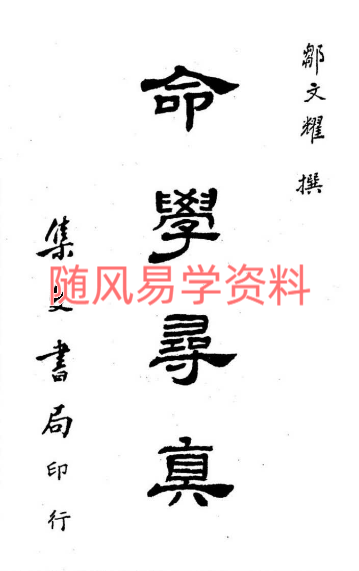 鄒文耀 撰
命學尋真
集文書局印行
随风易学资料